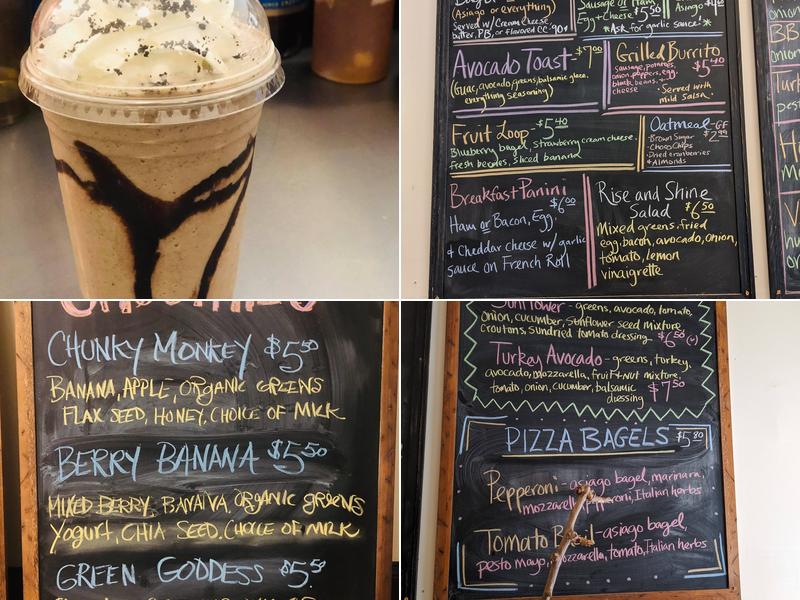 (Asiago or everything)
Served w/ Cream Cheese,
butter, PB, or Flavored CC. 90¢
Sausage or Ham
Egg + Cheese $5
Asiago
*Ask for garlic sauce!*
Avocado Toast - $7.00
(Guac, avocado, greens, balsamic glaze,
everything seasoning)
Grilled Burrito
$5.40
sausage, potatoes,
onion, peppers, egg,
black beans, +
cheese
• Served with
mild salsa.
Fruit Loop - $5.40
Blueberry bagel, strawberry cream cheese,
fresh berries, sliced banana
Oatmeal - GF
$2.99
• Brown Sugar
• Choco Chips
• Dried cranberries
& Almonds
Breakfast Panini
$6.00
Ham or Bacon, Egg,
& Cheddar cheese w/ garlic
sauce on French Roll
Rise and Shine
Salad $6.50
Mixed greens, fried
egg, bacon, avocado, onion,
tomato, lemon
vinaigrette
CHUNKY MONKEY $5.50
BANANA, APPLE, ORGANIC GREENS
FLAX SEED, HONEY, CHOICE OF MILK
BERRY BANANA $5.50
MIXED BERRY, BANANA, ORGANIC GREENS
Yogurt, CHIA SEED, CHOICE OF MILK
GREEN GODDESS $5.50
Sunflower - greens, avocado, tomato,
onion, cucumber, Sunflower seed mixture,
croutons, sundried tomato dressing $6.50 (v)
Turkey Avocado - greens, turkey,
avocado, mozzarella, fruit + nut mixture,
tomato, onion, cucumber, balsamic
dressing $7.50
PIZZA BAGELS $5.80
Pepperoni - asiago bagel, marinara,
mozzarella, pepperoni, Italian herbs
Tomato Basil - asiago bagel,
pesto mayo, mozzarella, tomato, Italian herbs